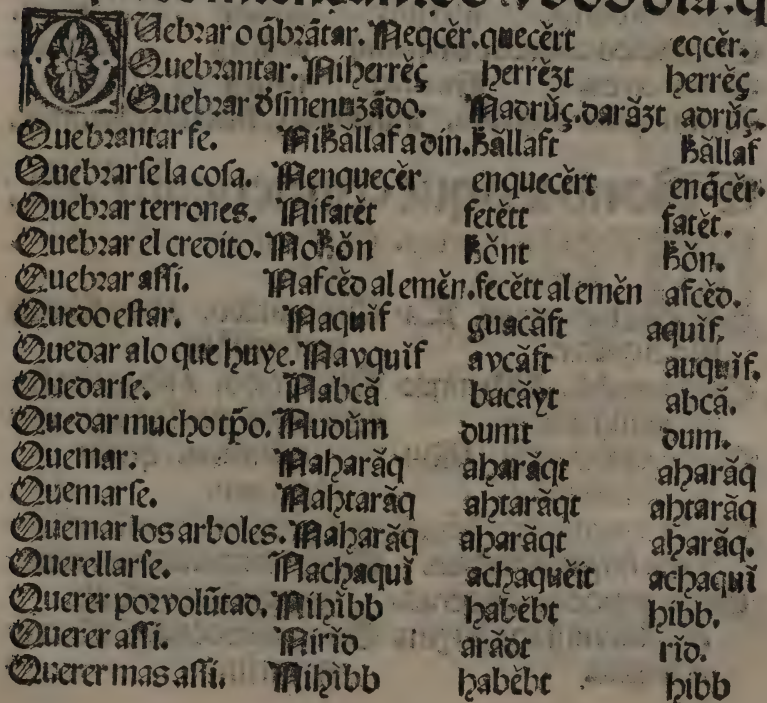 Quebrar o q̃brãtar. Neqcĕr. quecĕrt eqcĕr.
Quebrantar. Niherrĕç herrĕzt herrĕç
Quebrar d'smenuzãdo. Nadrŭç. darăzt adrŭç.
Quebrantar fe. Nik̆ăllaf a din. k̆ăllaft k̆ăllaf
Quebrarſe la coſa. Nenquecĕr enquecĕrt enq̃cĕr.
Quebrar terrones. Nifatĕt fetĕtt fatĕt.
Quebrar el credito. Nok̆ŏn k̆ŏnt k̆ŏn.
Quebrar aſſi. Nafcĕd al emĕn. fecĕtt al emĕn afcĕd.
Quedo eſtar. Naquĭf guacăft aquĭf.
Quedar alo que huye. Navquĭf avcăft auquĭf.
Quedarſe. Nabcă bacăyt abcă.
Quedar mucho tp̃o. Nudŭm dumt dum.
Quemar. Naharăq aharăqt aharăq
Quemarſe. Nahtarăq ahtarăqt ahtarăq
Quemar los arboles. Naharăq aharăqt aharăq.
Querellarſe. Nachaquĭ achaquĕit achaquĭ
Querer por volũtad. Nihĭbb habĕbt hĭbb.
Querer aſſi. Nirĭd arădt rĭd.
Querer mas aſſi. Nihĭbb habĕbt hĭbb